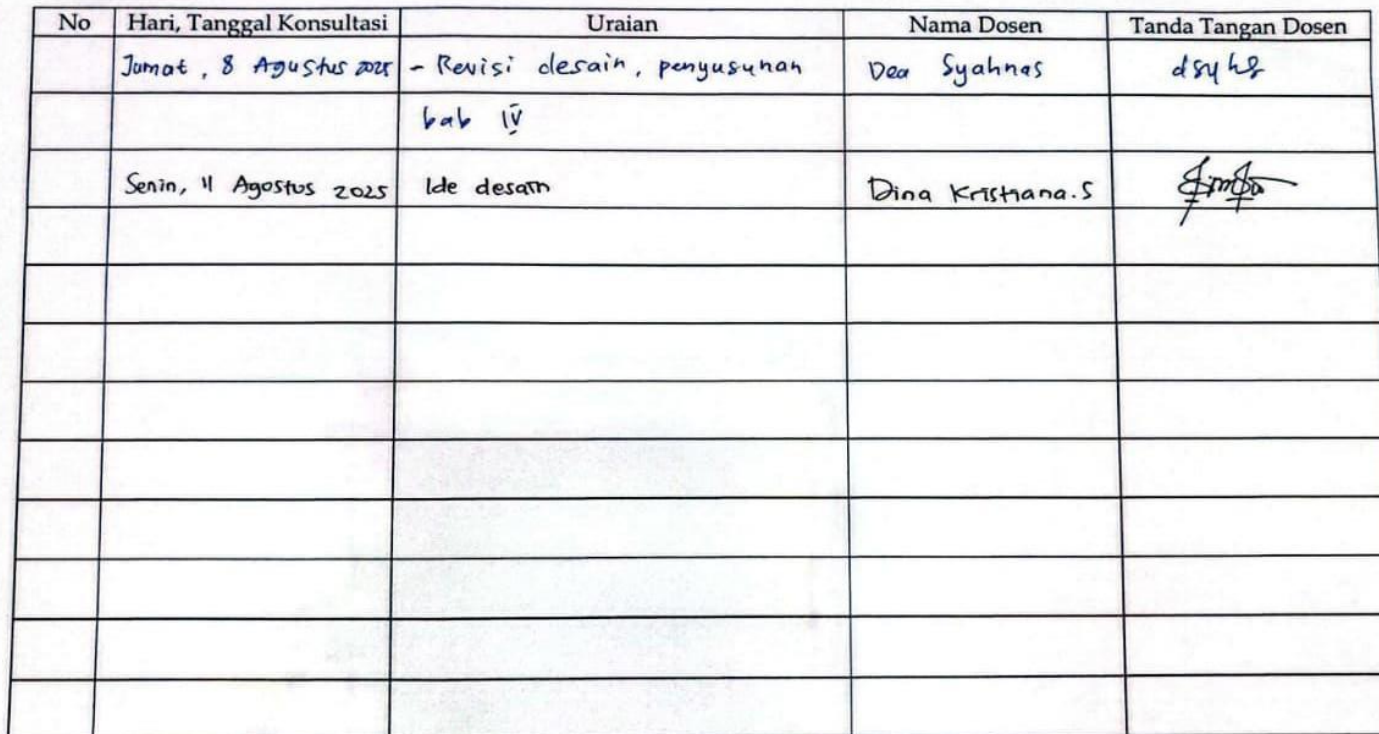 No Hari, Tanggal Konsultasi Uraian Nama Dosen Tanda Tangan Dosen
Jumat, 8 Agustus 2025 - Revisi desain, penyusunan Dea Syahnas
bab IV
Senin, 11 Agostus 2025 Ide desain Dina Kristiana.S